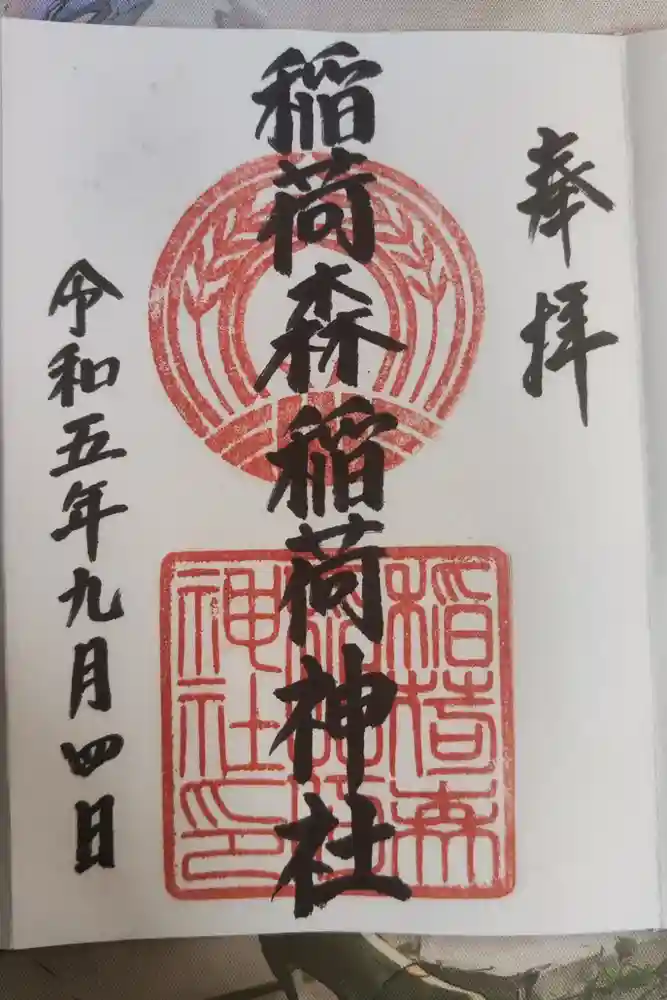 奉拝
稲荷森稲荷神社
令和五年九月四日
稲荷森
神社印